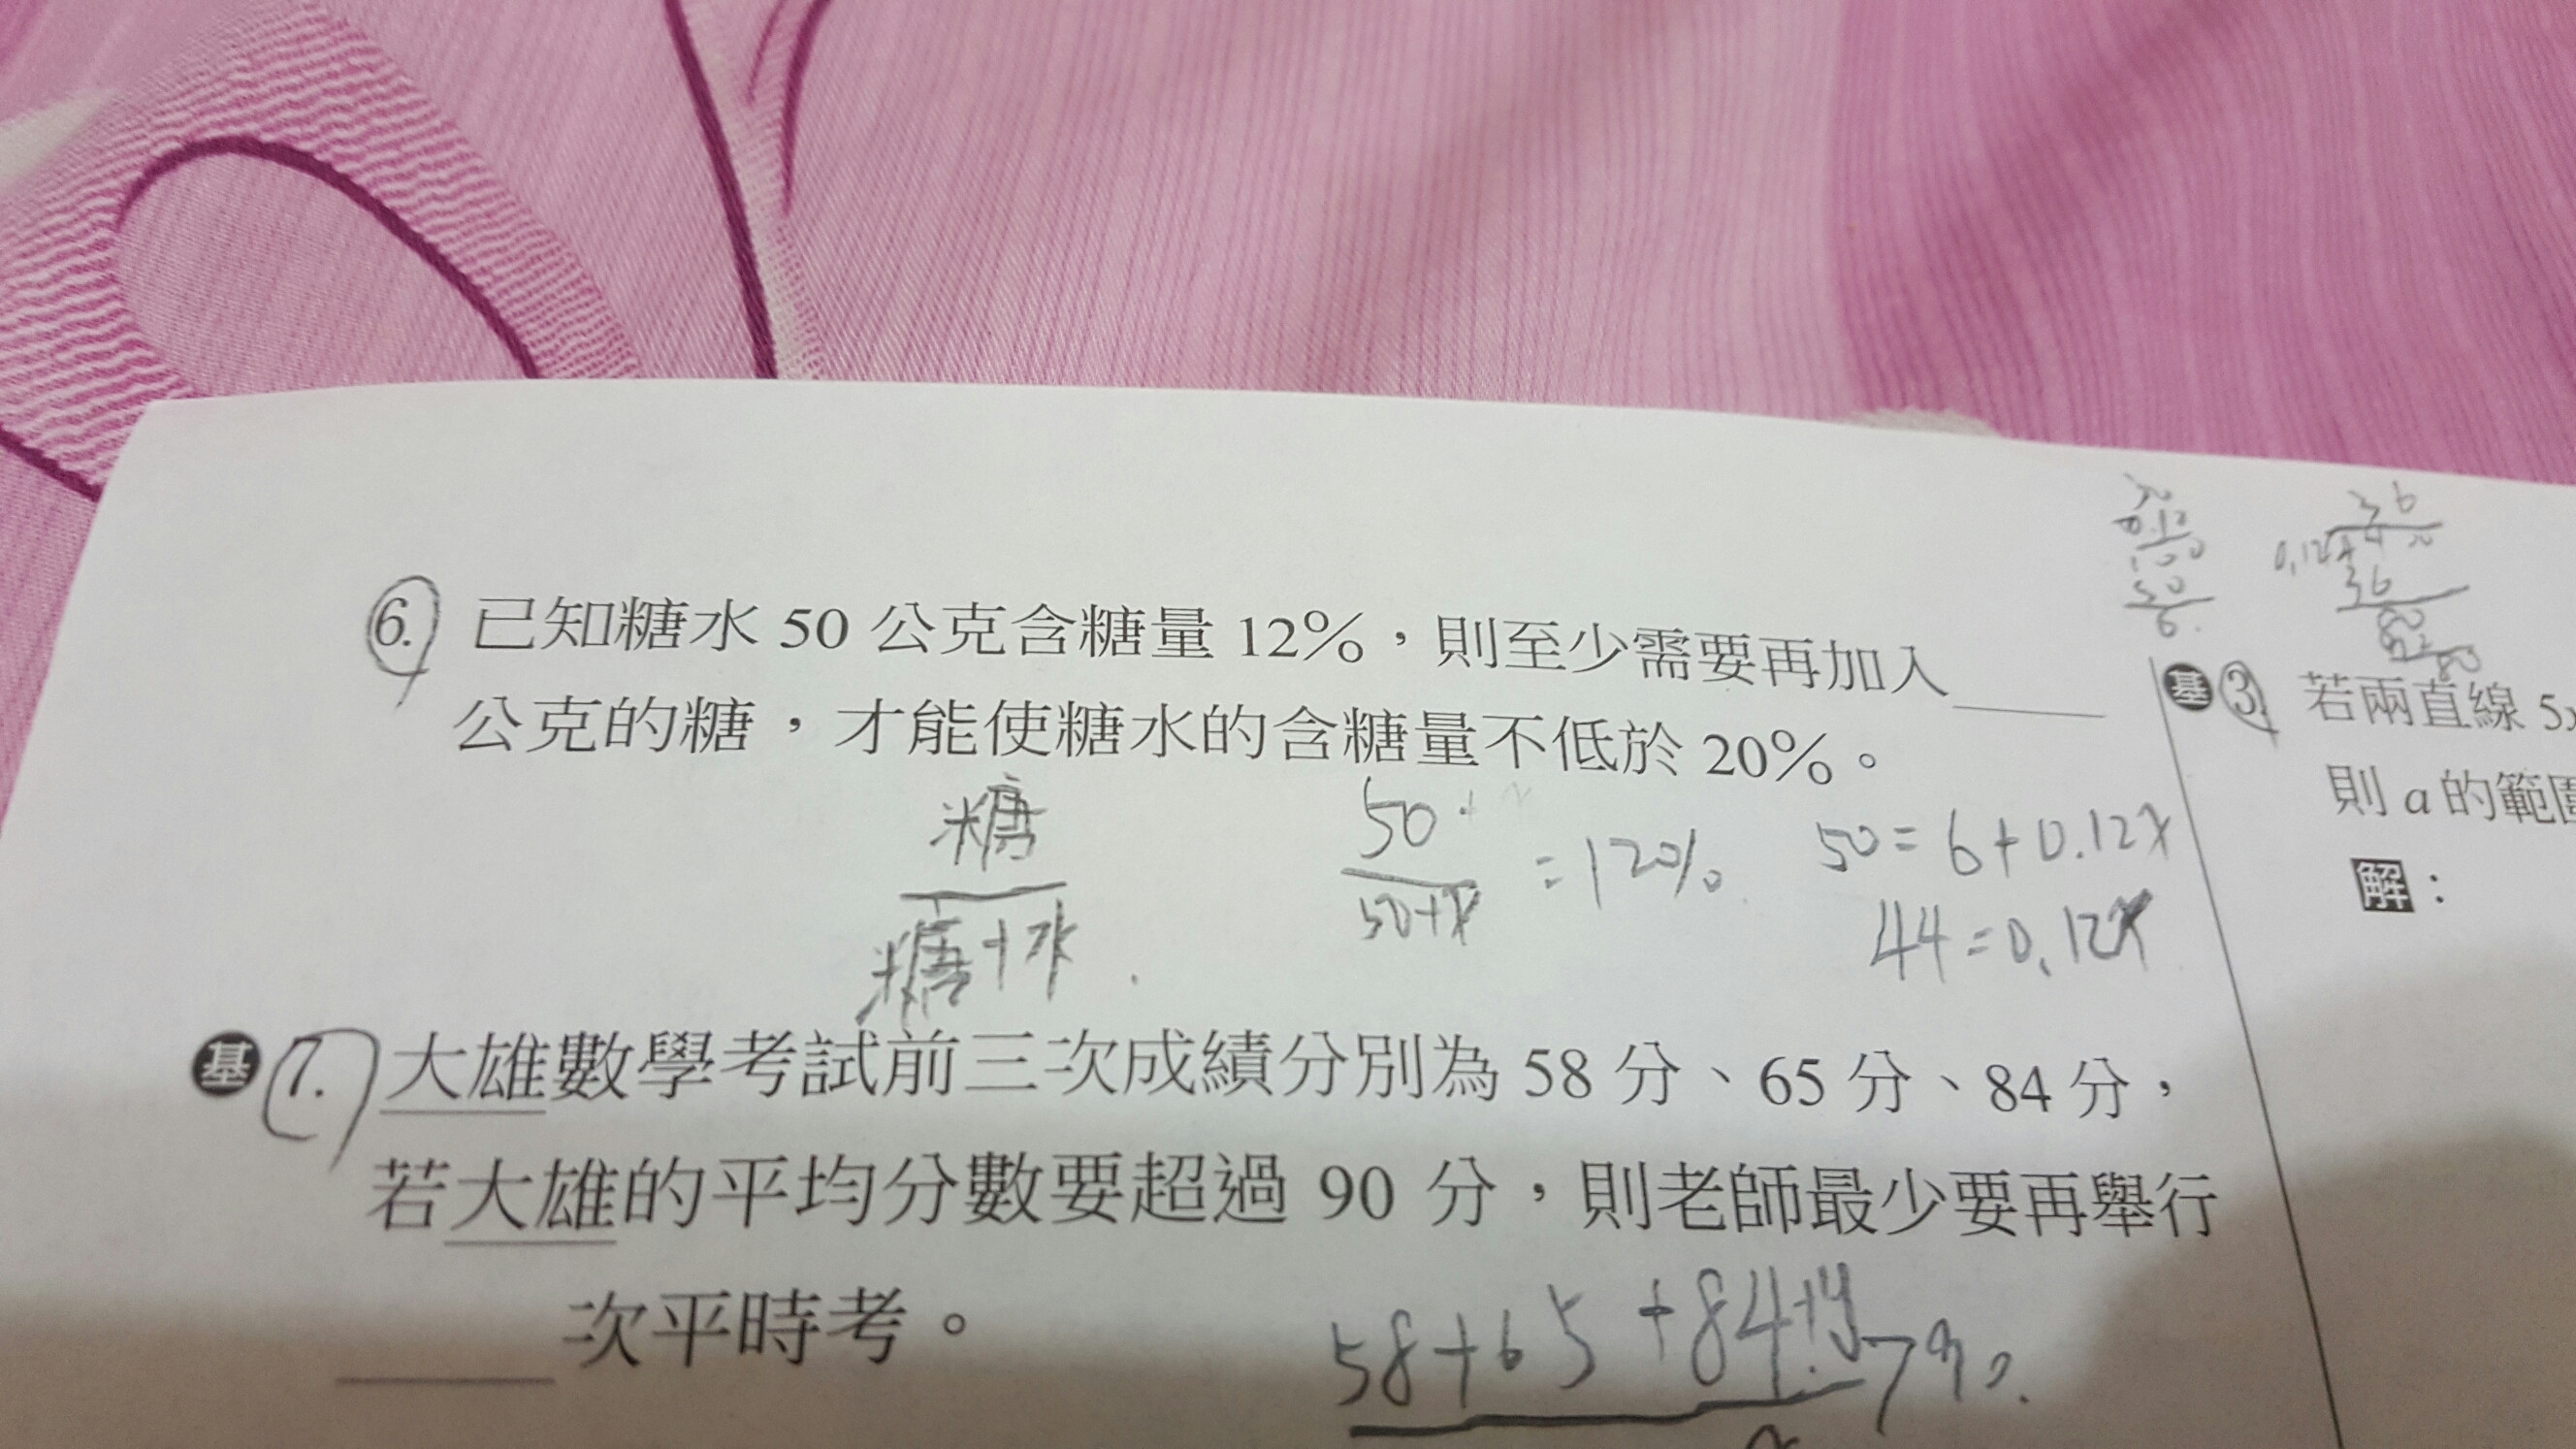 6. 已知糖水 50 公克含糖量 12%,則至少需要再加入
公克的糖,才能使糖水的含糖量不低於 20%。
糖
糖+水
50
50+x
=12%
50=6+0.12x
44=0.12x
基 7. 大雄數學考試前三次成績分別為 58 分、65 分、84 分,
若大雄的平均分數要超過 90 分,則老師最少要再舉行
次平時考。
58+65+84+y>90
0.12
100
50
6.
36
0.12
36
基 3. 若兩直線 5x
則 a 的範圍
解: